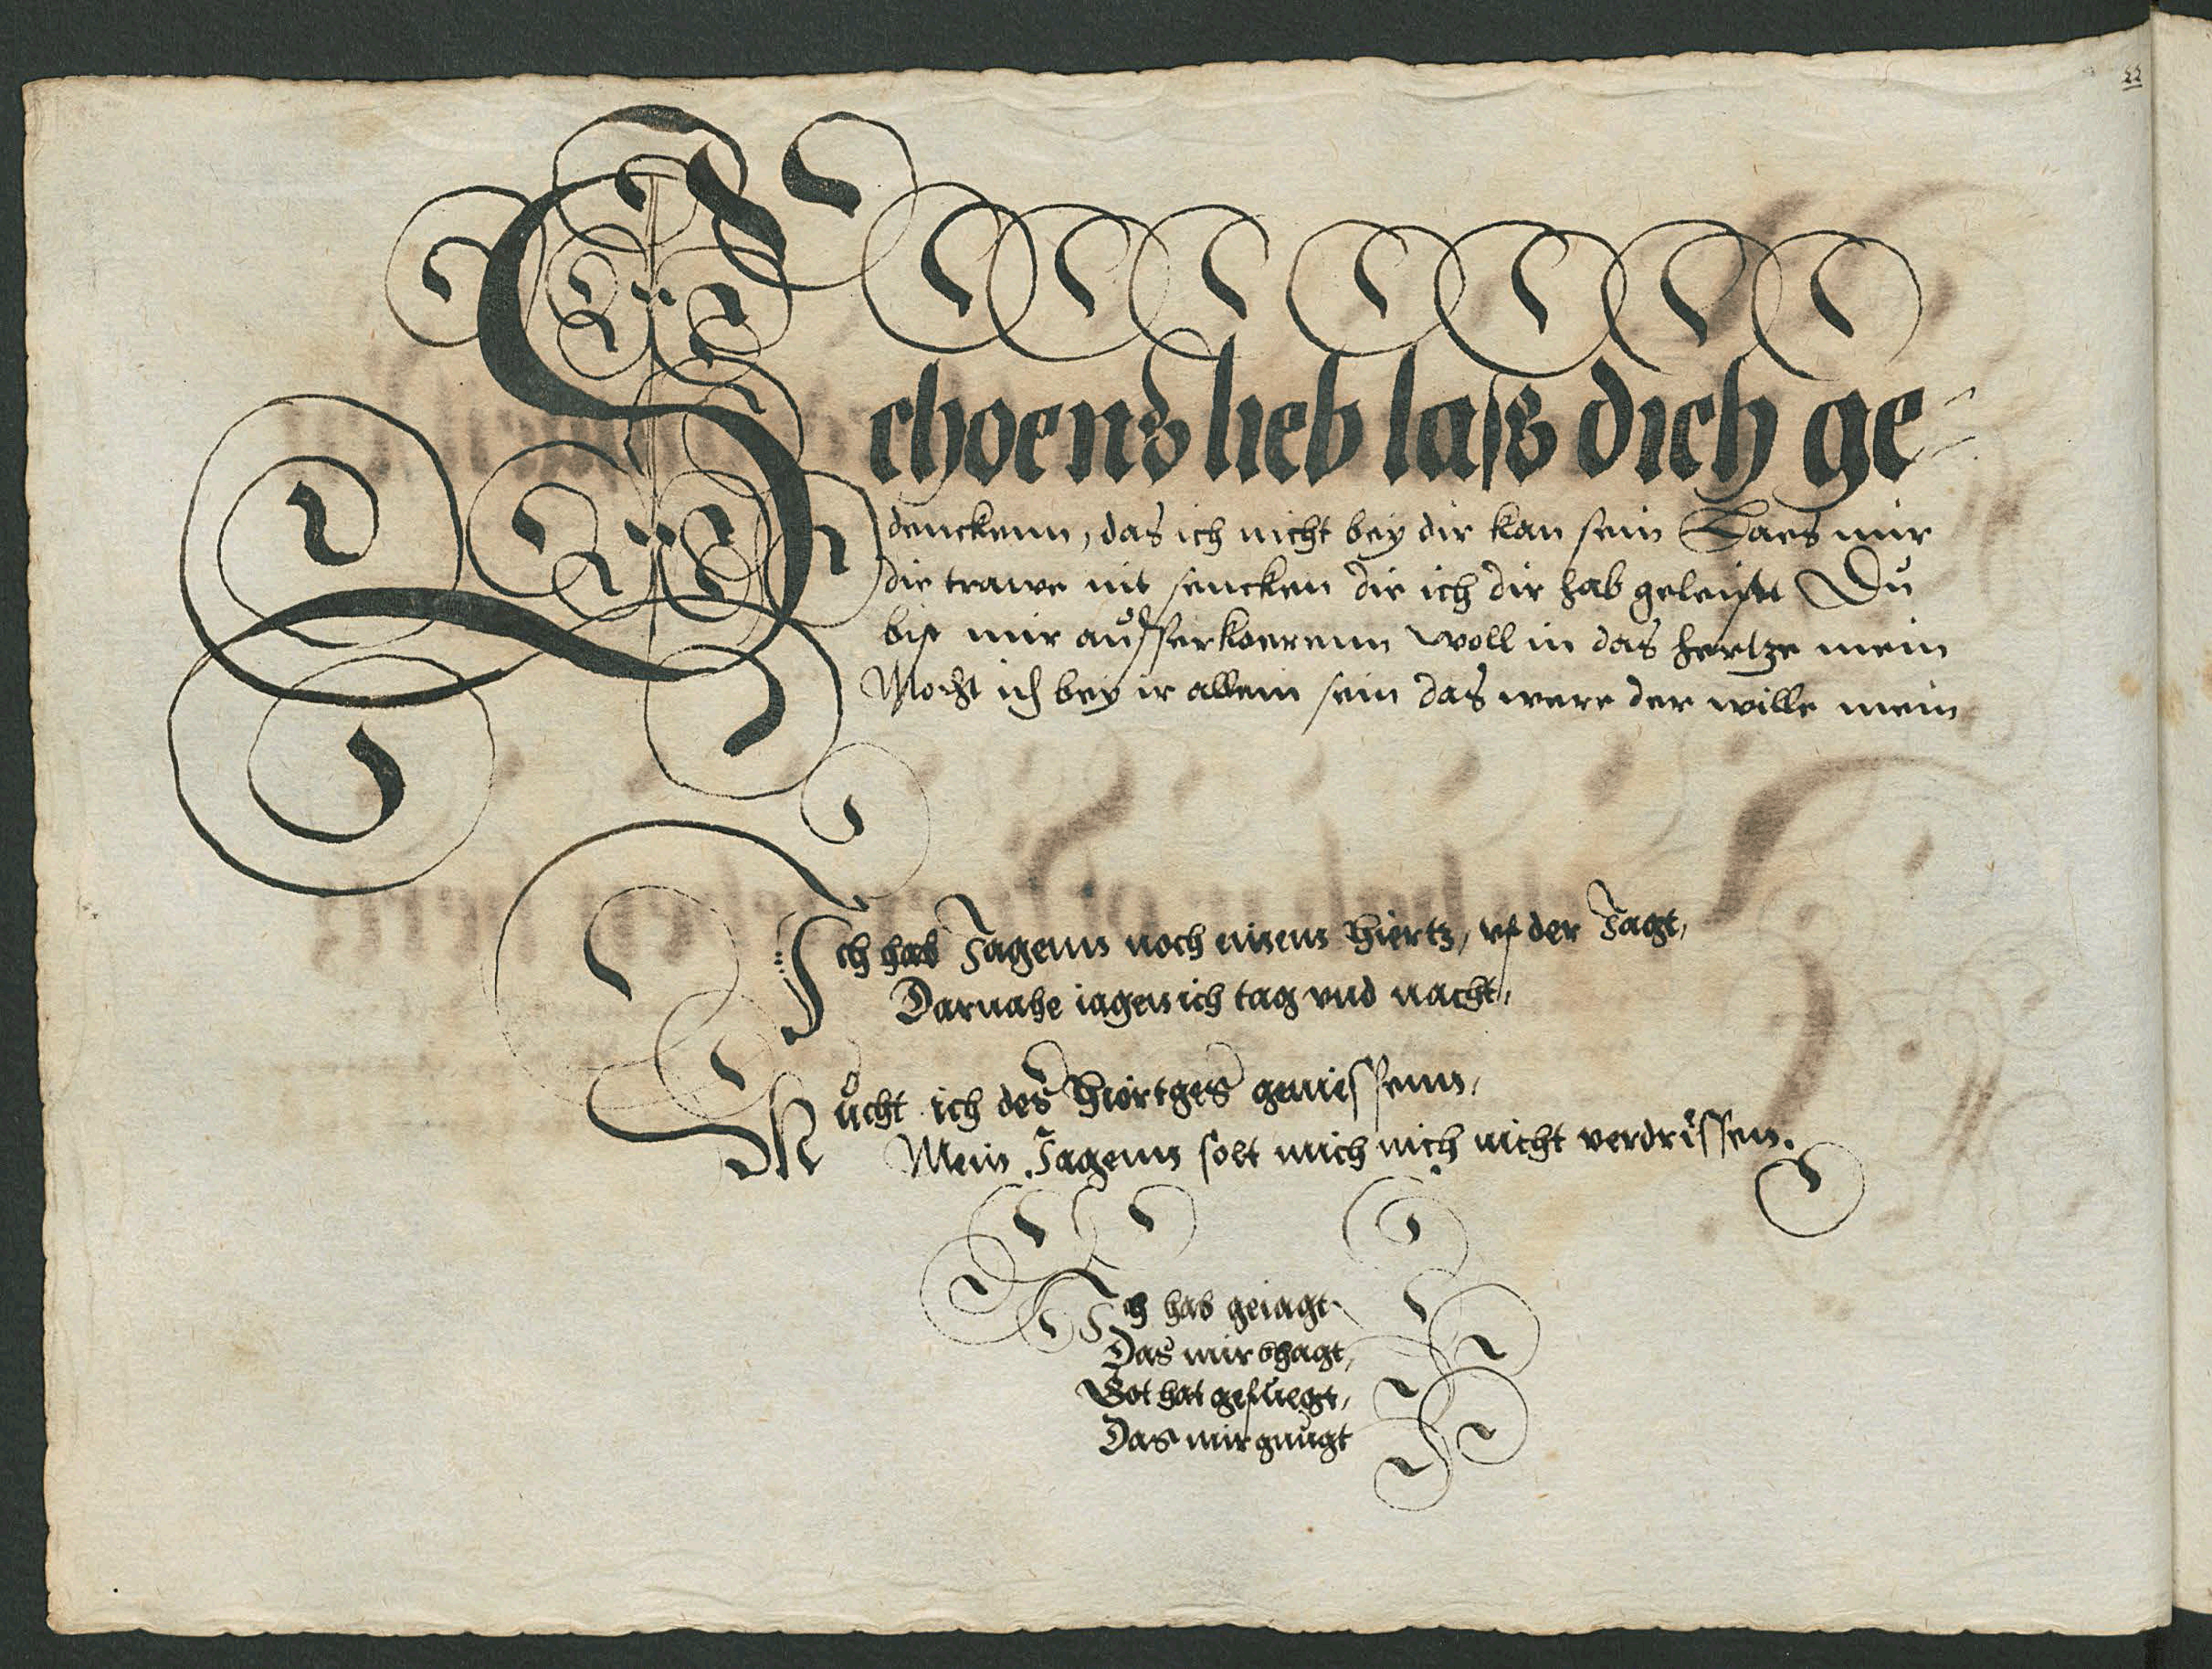 Schoens lieb lass dich ge=
denckenn, das ich nicht bey dir kan sein Laes mir
die trawe nit sencken die ich dir hab geleist Du
bist mir ausserkoerenn woll in das hertze mein
Mocht ich bey ir allein sein das were der wille mein
Ich hab Jagenn noch einenn hiertz, vf der Jagt,
Darnahe iagen ich tag vnd nacht,
Mücht ich des hiortges geniessenn,
Mein Jagenn solt mich nich nicht verdrissen.
Ich hab geiagt
Das mir bhagt,
Got hat gefuegt,
Das mir gnugt